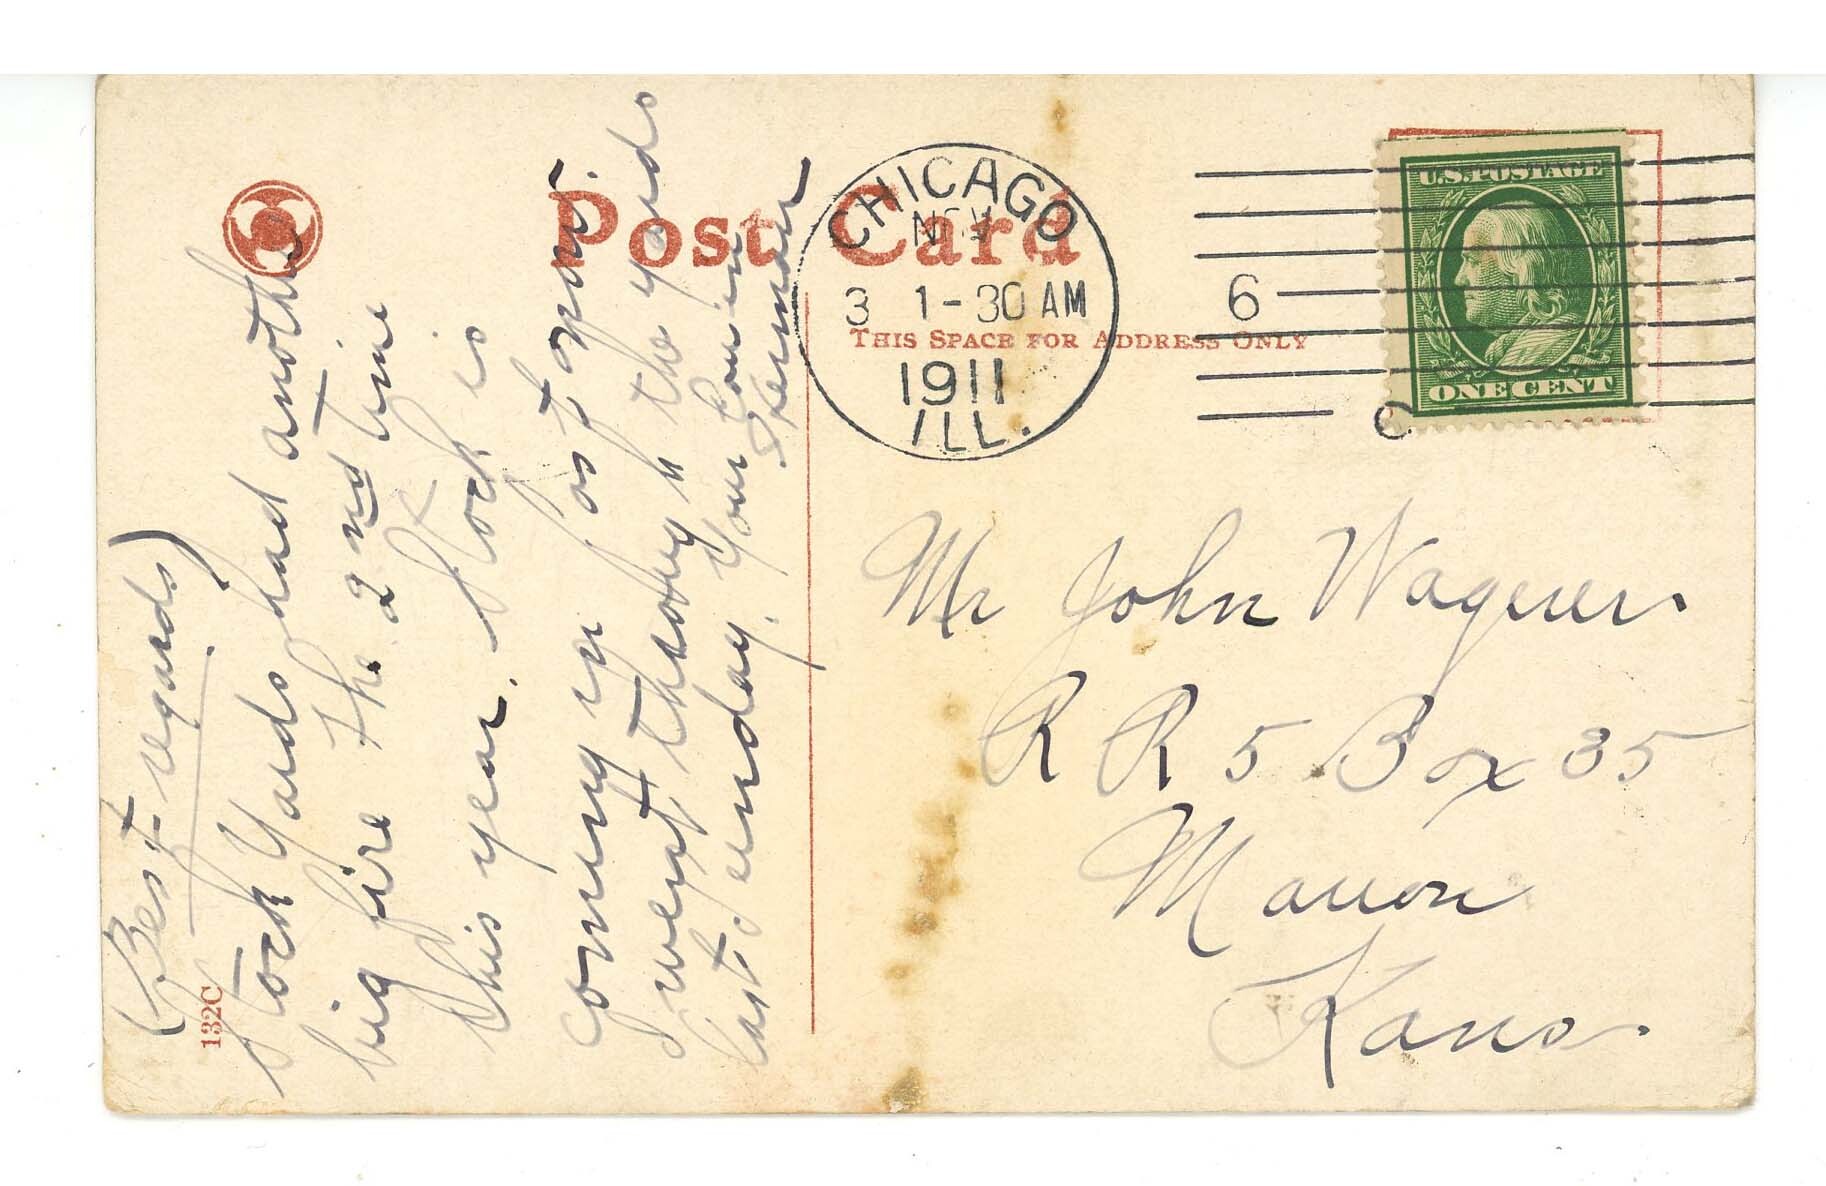 Post Card
THIS SPACE FOR ADDRESS ONLY
CHICAGO
NOV
3 1-30 AM
1911
ILL.
6
C
U.S. POSTAGE
ONE CENT
132C
(Best regards)
Stock Yards had another
big fire The 2nd time
this year. Stock is
coming up fast again.
I went through the yards
last Sunday. Your Cousin
Herman
Mr John Wagner.
R R 5 Box 35
Marion
Kans.